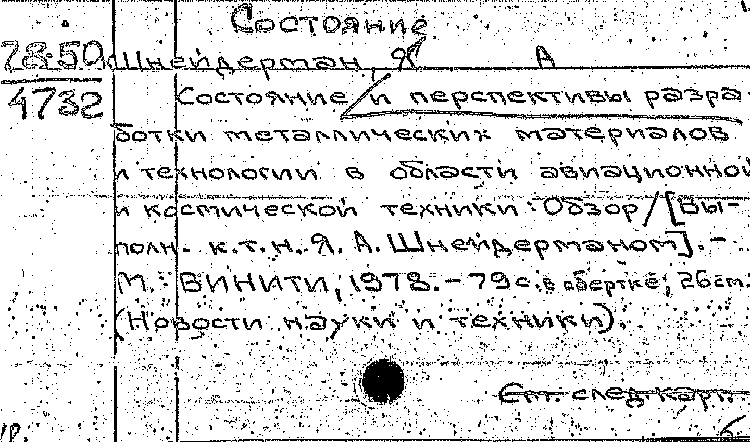 Состояние
78-50 Шнейдерман, Я А
4732 Состояние и перспективы разра-
ботки металлических материалов
и технологии в области авиационной
и космической техники: Обзор/[Вы-
полн. к.т.н. Я. А. Шнейдерманом]. -
М.: ВИНИТИ, 1978. - 79 с. в обертке; 26 см.
(Новости науки и техники).
См. след карт.